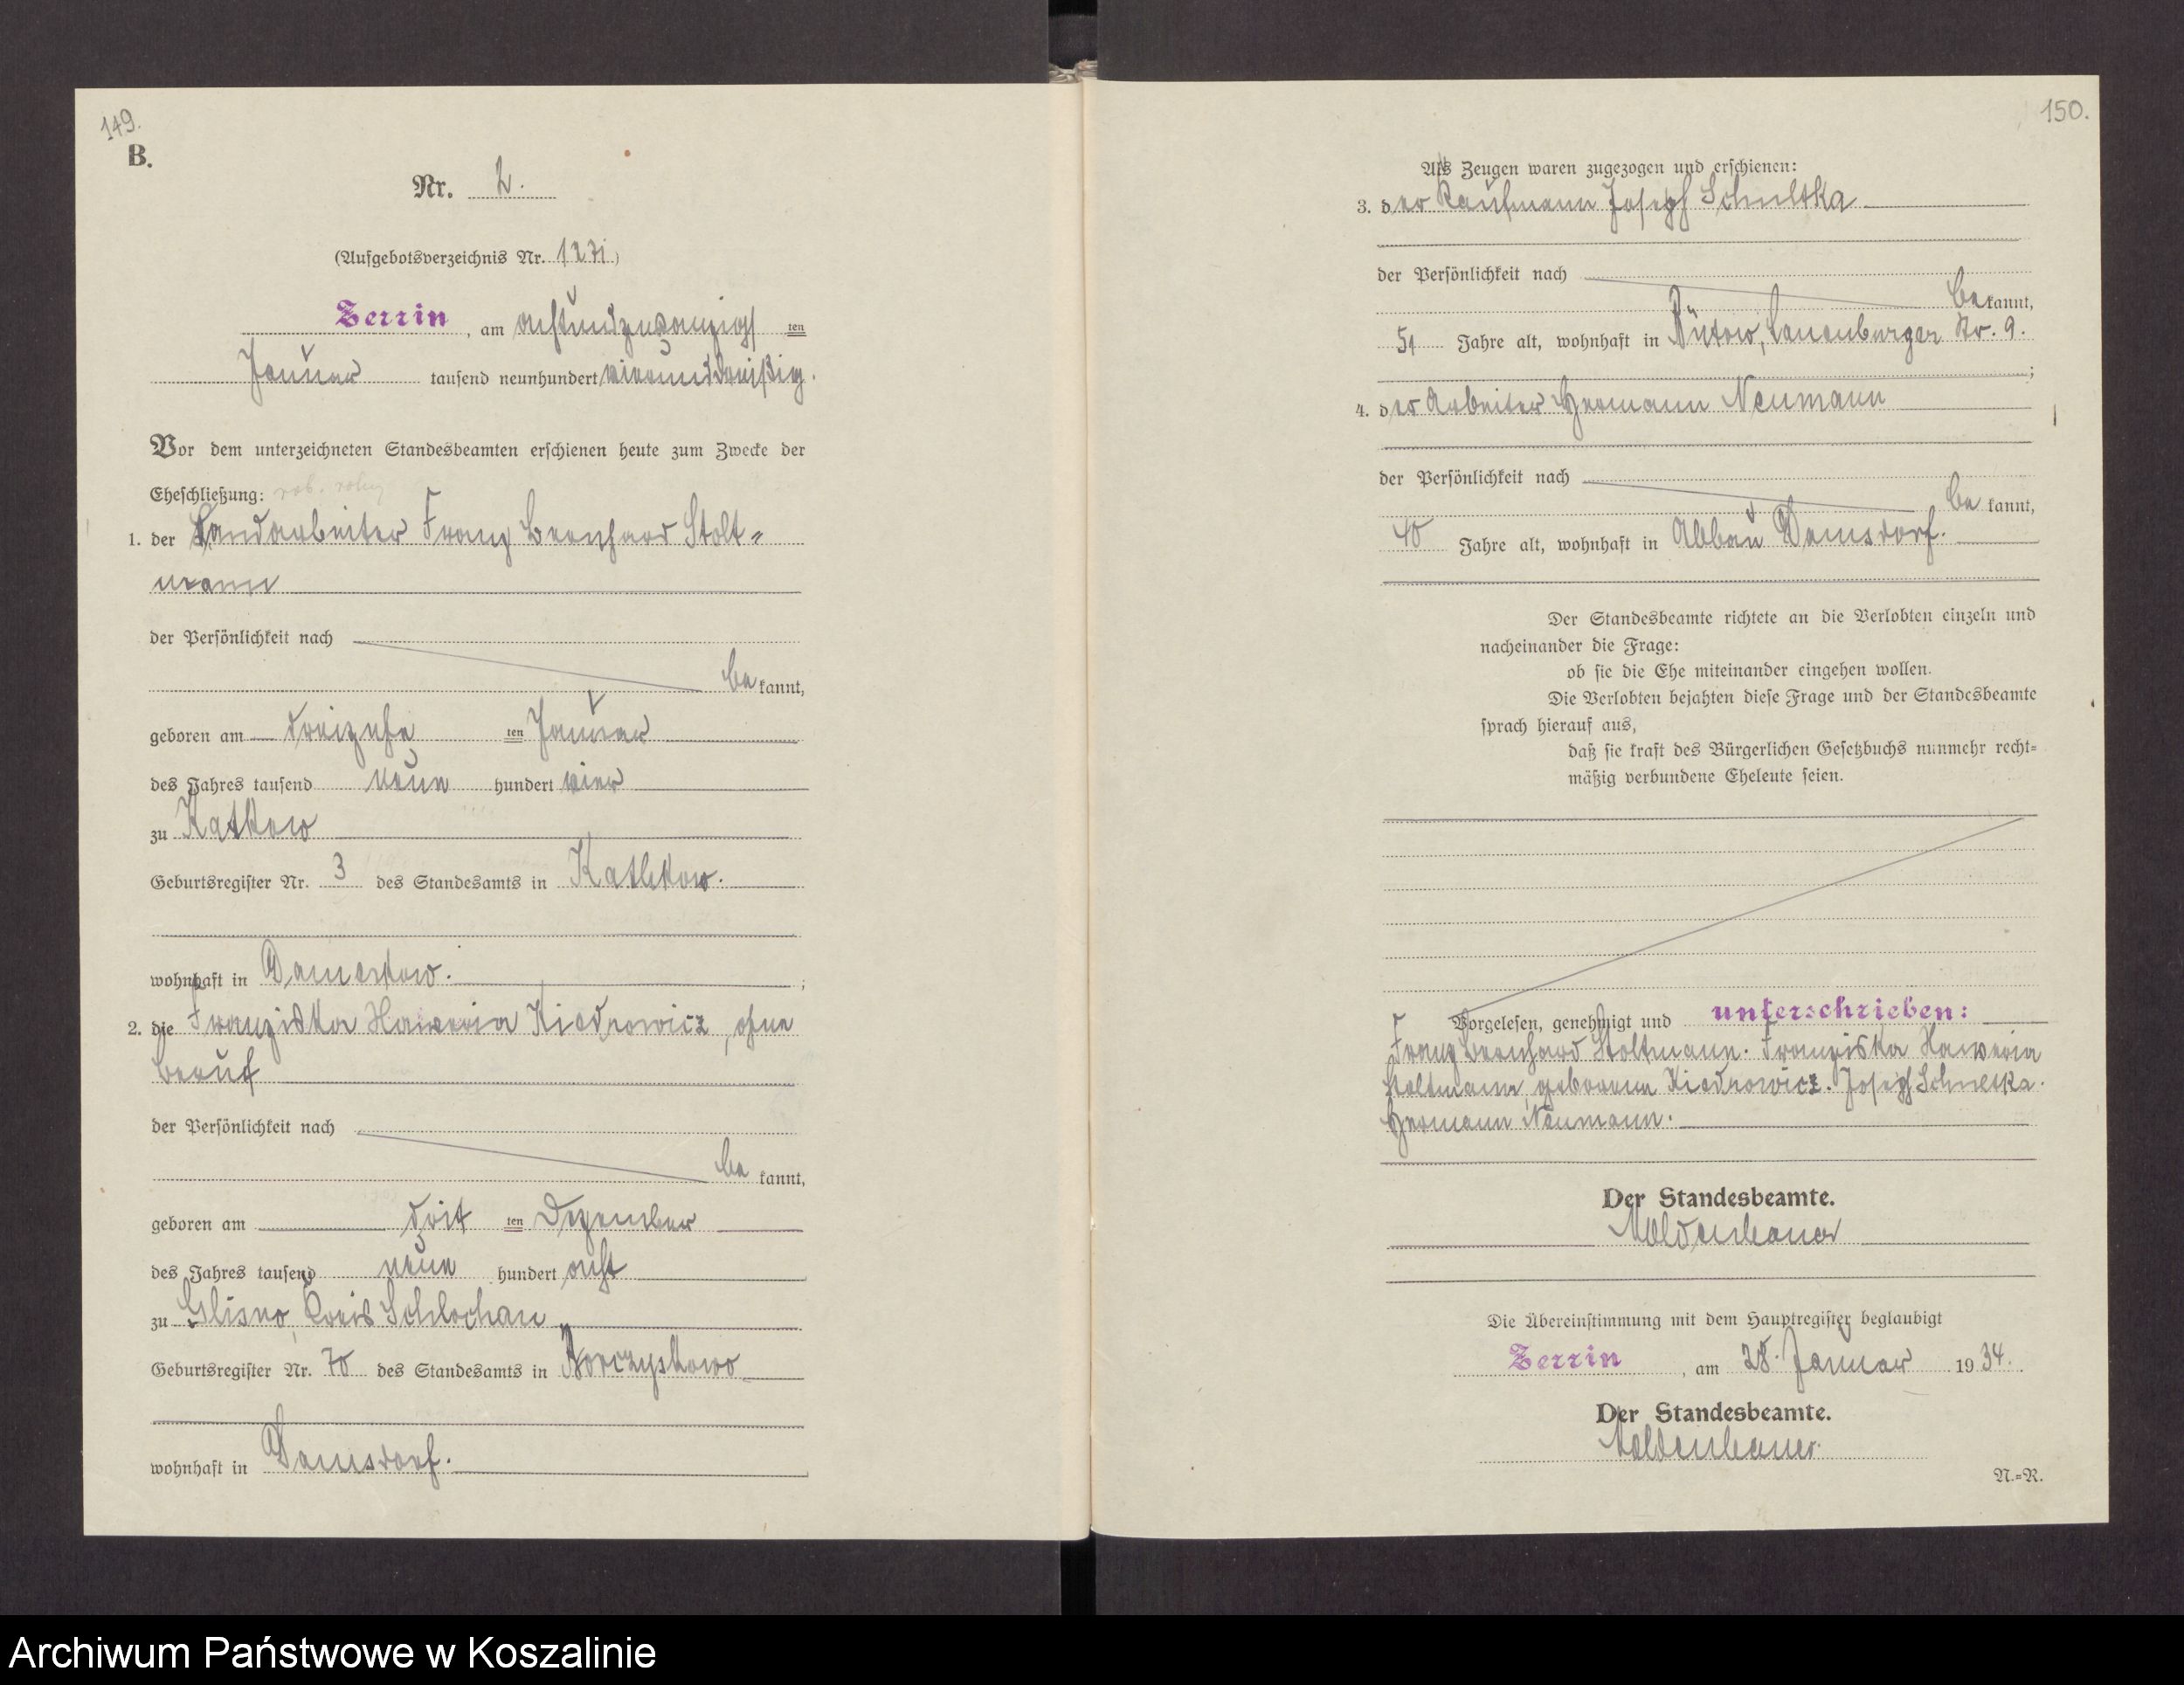 149.
B.
Nr. 2.
(Aufgebotsverzeichnis Nr. 127)
Zerrin, am achtundzwanzigsten
Januar tausend neunhundert vierunddreißig.
Vor dem unterzeichneten Standesbeamten erschienen heute zum Zwecke der
Eheschließung:
1. der Landarbeiter Franz Bernhard Stolt=
mann
der Persönlichkeit nach
be kannt,
geboren am dreizehn ten Januar
des Jahres tausend neun hundert vier
zu Katkow
Geburtsregister Nr. 3 des Standesamts in Kathkow.
wohnhaft in Damerkow. ;
2. die Franziska Haweria Kiedrowicz, ohne
Beruf
der Persönlichkeit nach
be kannt,
geboren am drit ten Dezember
des Jahres tausend neun hundert acht
zu Glisno, Kreis Schlochau
Geburtsregister Nr. 70 des Standesamts in Borczyskowo
wohnhaft in Damsdorf.
150.
Als Zeugen waren zugezogen und erschienen:
3. der Kaufmann Joseph Schultka
der Persönlichkeit nach
be kannt,
51 Jahre alt, wohnhaft in Bütow, Lauenburger Str. 9.
;
4. der Arbeiter Hermann Neumann
der Persönlichkeit nach
be kannt,
40 Jahre alt, wohnhaft in Abbau Damsdorf.
Der Standesbeamte richtete an die Verlobten einzeln und
nacheinander die Frage:
ob sie die Ehe miteinander eingehen wollen.
Die Verlobten bejahten diese Frage und der Standesbeamte
sprach hierauf aus,
daß sie kraft des Bürgerlichen Gesetzbuchs nunmehr recht=
mäßig verbundene Eheleute seien.
Vorgelesen, genehmigt und unterschrieben:
Franz Bernhard Stoltmann. Franziska Haweria
Stoltmann, geborene Kiedrowicz. Joseph Schultka.
Hermann Neumann.
Der Standesbeamte.
Moldenhauer
Die Übereinstimmung mit dem Hauptregister beglaubigt
Zerrin, am 28. Januar 1934.
Der Standesbeamte.
Moldenhauer.
N.=R.
Archiwum Państwowe w Koszalinie